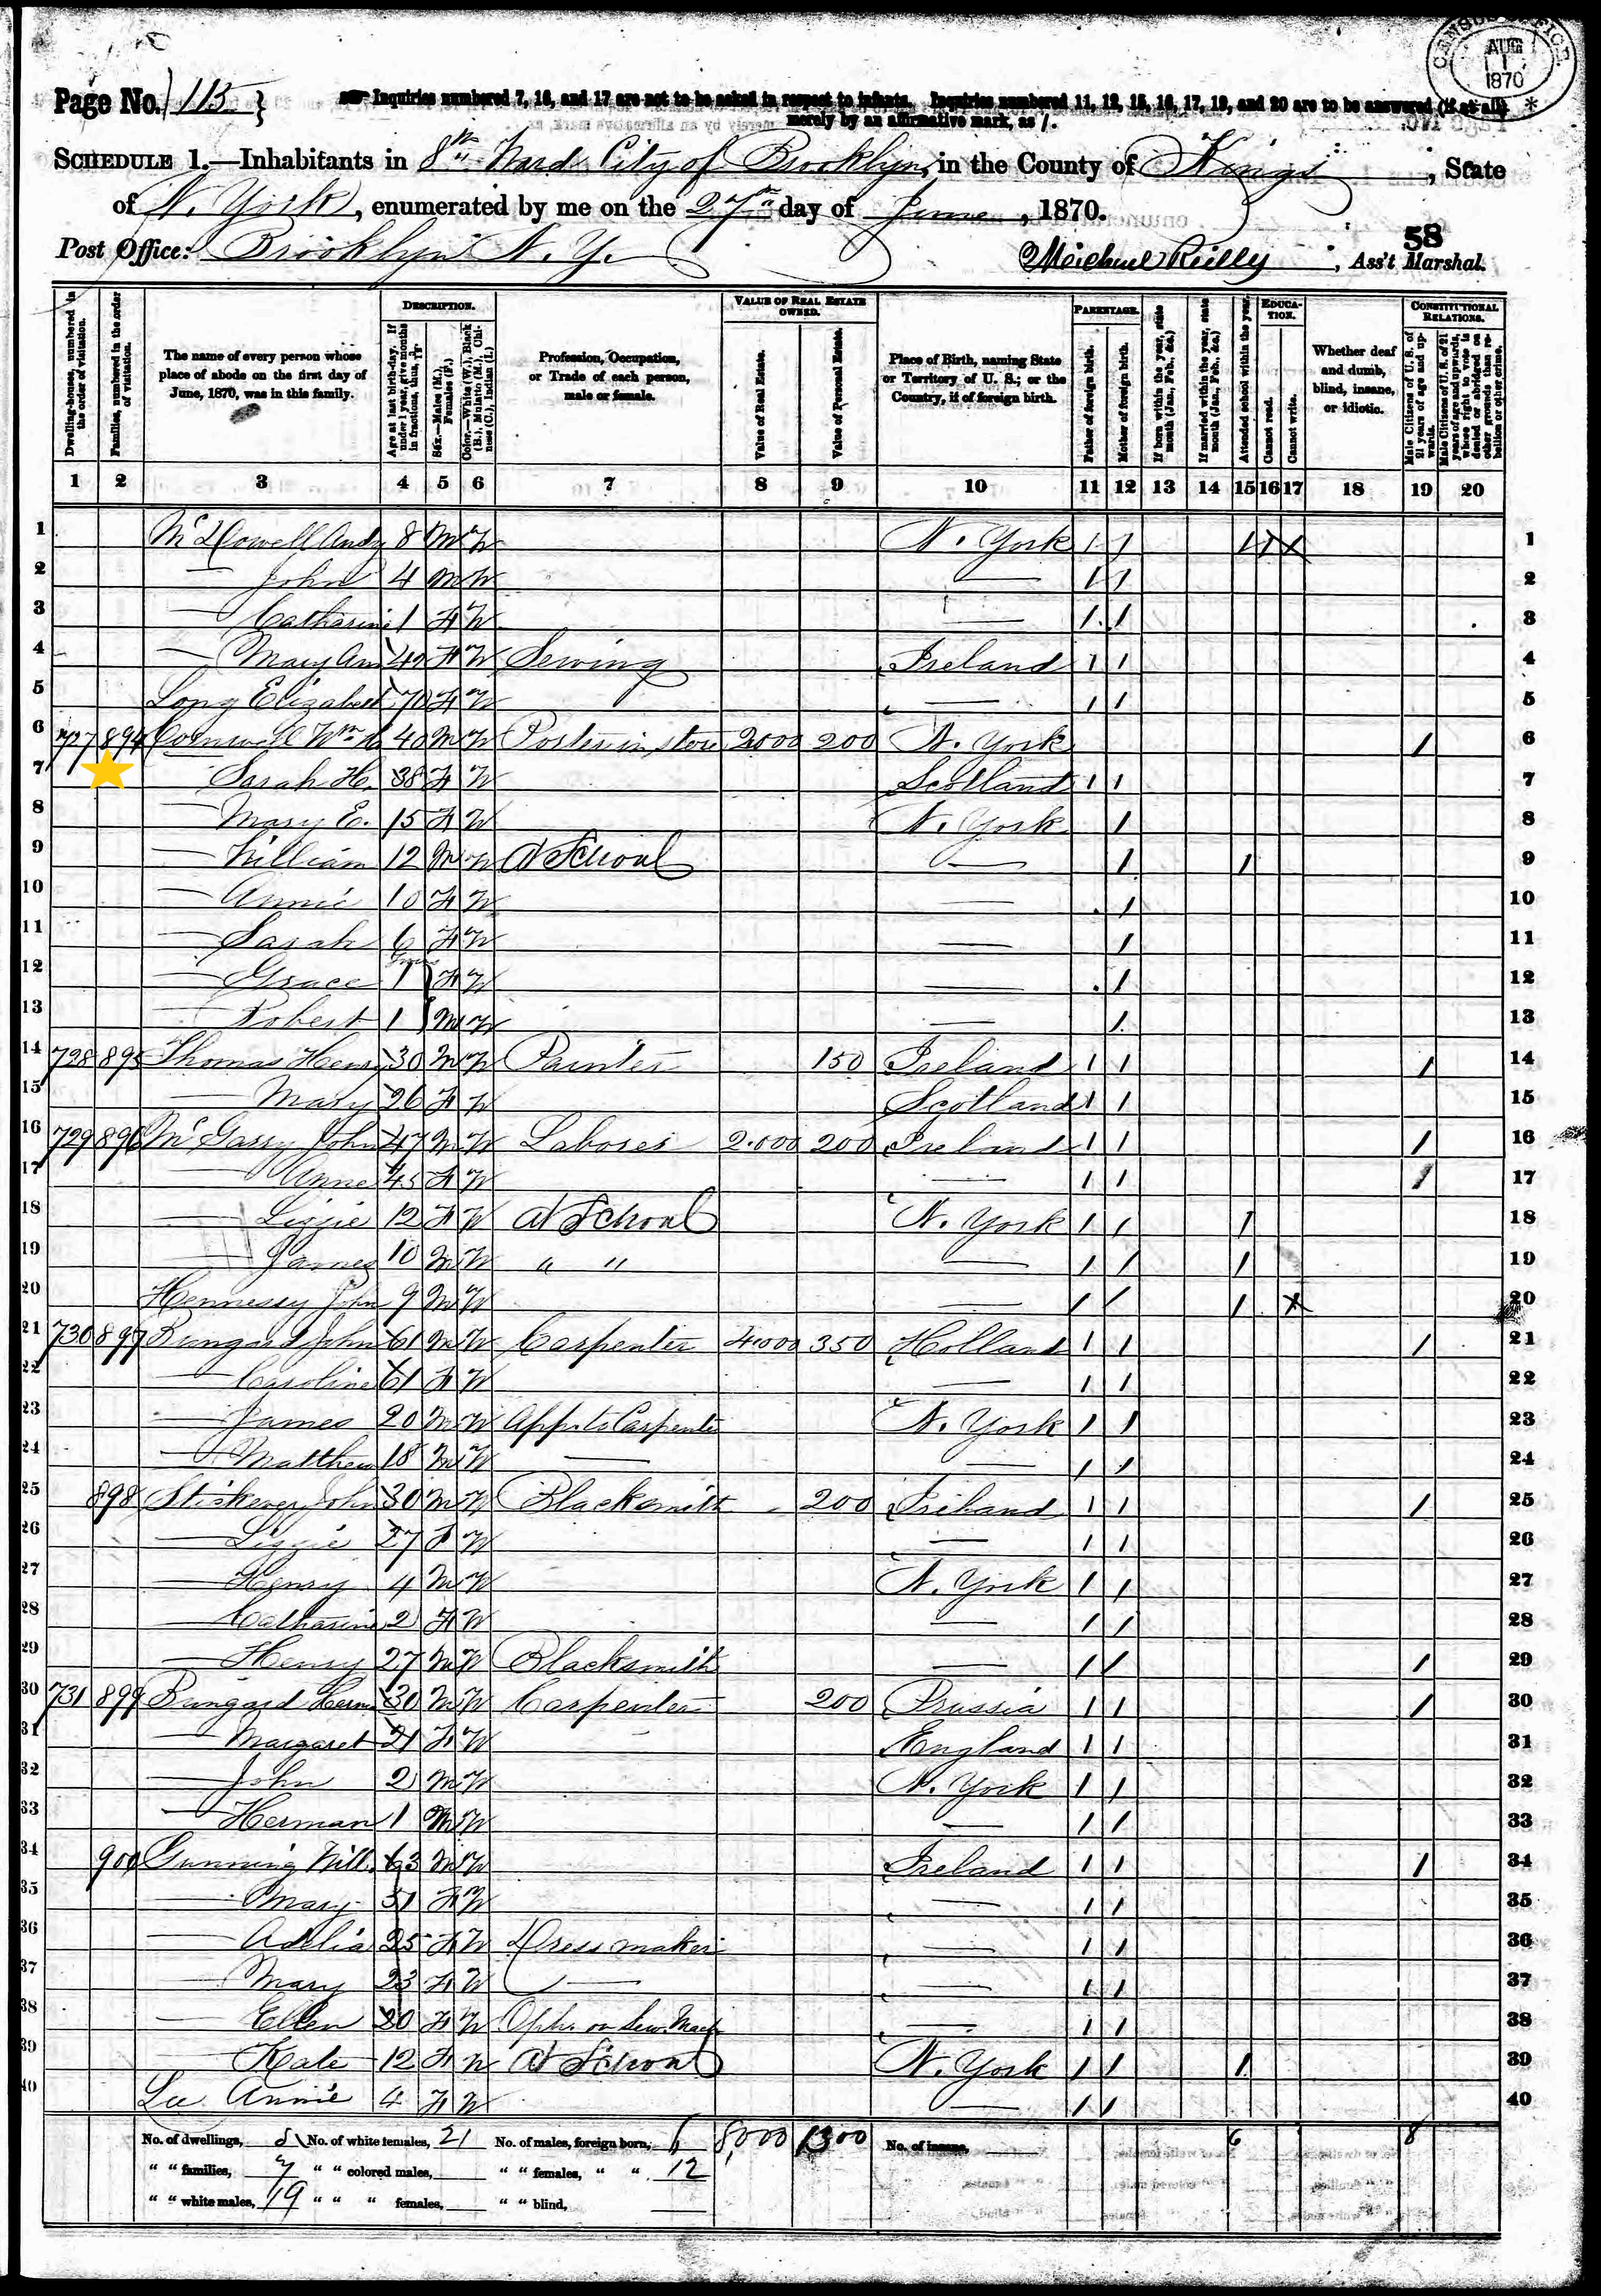 CENSUS OFFICE AUG 1 1870 *
Page No. 113
Inquiries numbered 7, 16, and 17 are not to be asked in respect to infants. Inquiries numbered 11, 12, 15, 16, 17, 19, and 20 are to be answered (if at all)
merely by an affirmative mark, as /.
SCHEDULE 1.—Inhabitants in 8th Ward City of Brooklyn, in the County of Kings, State
of N. York, enumerated by me on the 27th day of June, 1870.
58
Post Office: Brooklyn N. Y. Michael Reilly, Ass't Marshal.
Dwelling-houses, numbered in the order of visitation.
Families, numbered in the order of visitation.
The name of every person whose place of abode on the first day of June, 1870, was in this family.
DESCRIPTION.
Age at last birth-day. If under 1 year, give months in fractions, thus,
Sex.—Males (M.), Females (F.)
Color.—White (W.), Black (B.), Mulatto (M.), Chinese (C.), Indian (I.)
Profession, Occupation, or Trade of each person, male or female.
VALUE OF REAL ESTATE OWNED.
Value of Real Estate.
Value of Personal Estate.
Place of Birth, naming State or Territory of U. S.; or the Country, if of foreign birth.
PARENTAGE.
Father of foreign birth.
Mother of foreign birth.
If born within the year, state month (Jan., Feb., &c.)
If married within the year, state month (Jan., Feb., &c.)
Attended school within the year.
EDUCATION.
Cannot read.
Cannot write.
Whether deaf and dumb, blind, insane, or idiotic.
CONSTITUTIONAL RELATIONS.
Male Citizens of U. S. of 21 years of age and upwards.
Male Citizens of U. S. of 21 years of age and upwards, whose right to vote is denied or abridged on other grounds than rebellion or other crime.
1 2 3 4 5 6 7 8 9 10 11 12 13 14 15 16 17 18 19 20
1 McDowell Andy 8 M W N. York / / / / x 1
2 — John 4 M W — / / 2
3 — Catharine 1 F W — / / 3
4 — Mary Ann 42 F W Sewing Ireland / / 4
5 Long Elizabeth 70 F W — / / 5
6 727 894 Cornwell Wm 40 M W Porter in store 2000 200 N. York / 6
7 Sarah H. 38 F W Scotland / / 7
8 — Mary E. 15 F W N. York / 8
9 — William 12 M W At School — / / 9
10 — Annie 10 F W — / 10
11 — Sarah 6 F W — / 11
12 — Grace 1 Twins F W — / 12
13 — Robert 1 M W — / 13
14 728 895 Thomas Henry 30 M W Painter 150 Ireland / / / 14
15 — Mary 26 F W Scotland / / 15
16 729 896 McGarry John 47 M W Laborer 2.000 200 Ireland / / / 16
17 — Anne 45 F W — / / / 17
18 — Lizzie 12 F W At School N. York / / / 18
19 — James 10 M W " " — / / / 19
20 Hennessy John 9 M W — / / / x 20
21 730 897 Bungard John 61 M W Carpenter 4.000 350 Holland / / / 21
22 — Caroline 61 F W — / / 22
23 — James 20 M W App. to Carpenter N. York / / 23
24 — Matthew 18 M W — — / / 24
25 898 John 30 M W Blacksmith 200 Ireland / / / 25
26 — Lizzie 27 F W — / / 26
27 — Henry 4 M W N. York / / 27
28 — Catharine 2 F W — / / 28
29 — Henry 27 M W Blacksmith — / / / 29
30 731 899 Bungard Herm 30 M W Carpenter 200 Prussia / / / 30
31 — Margaret 21 F W England / / 31
32 — John 2 M W N. York / / 32
33 — Herman 1 M W — / / 33
34 900 Gunning Will. 63 M W Ireland / / / 34
35 — Mary 51 F W — / / 35
36 — Adelia 25 F W Dress maker — / / 36
37 — Mary 23 F W — — / / 37
38 — Ellen 20 F W Opr. on Sew. Mach — / / 38
39 — Kate 12 F W At School N. York / / / 39
40 Lee Annie 4 F W — / / 40
No. of dwellings, 5 No. of white females, 21 No. of males, foreign born, 6 8,000 1300 No. of insane, 6 8
" " families, 7 " " colored males, " " females, " " 12
" " white males, 19 " " " females, " " blind,